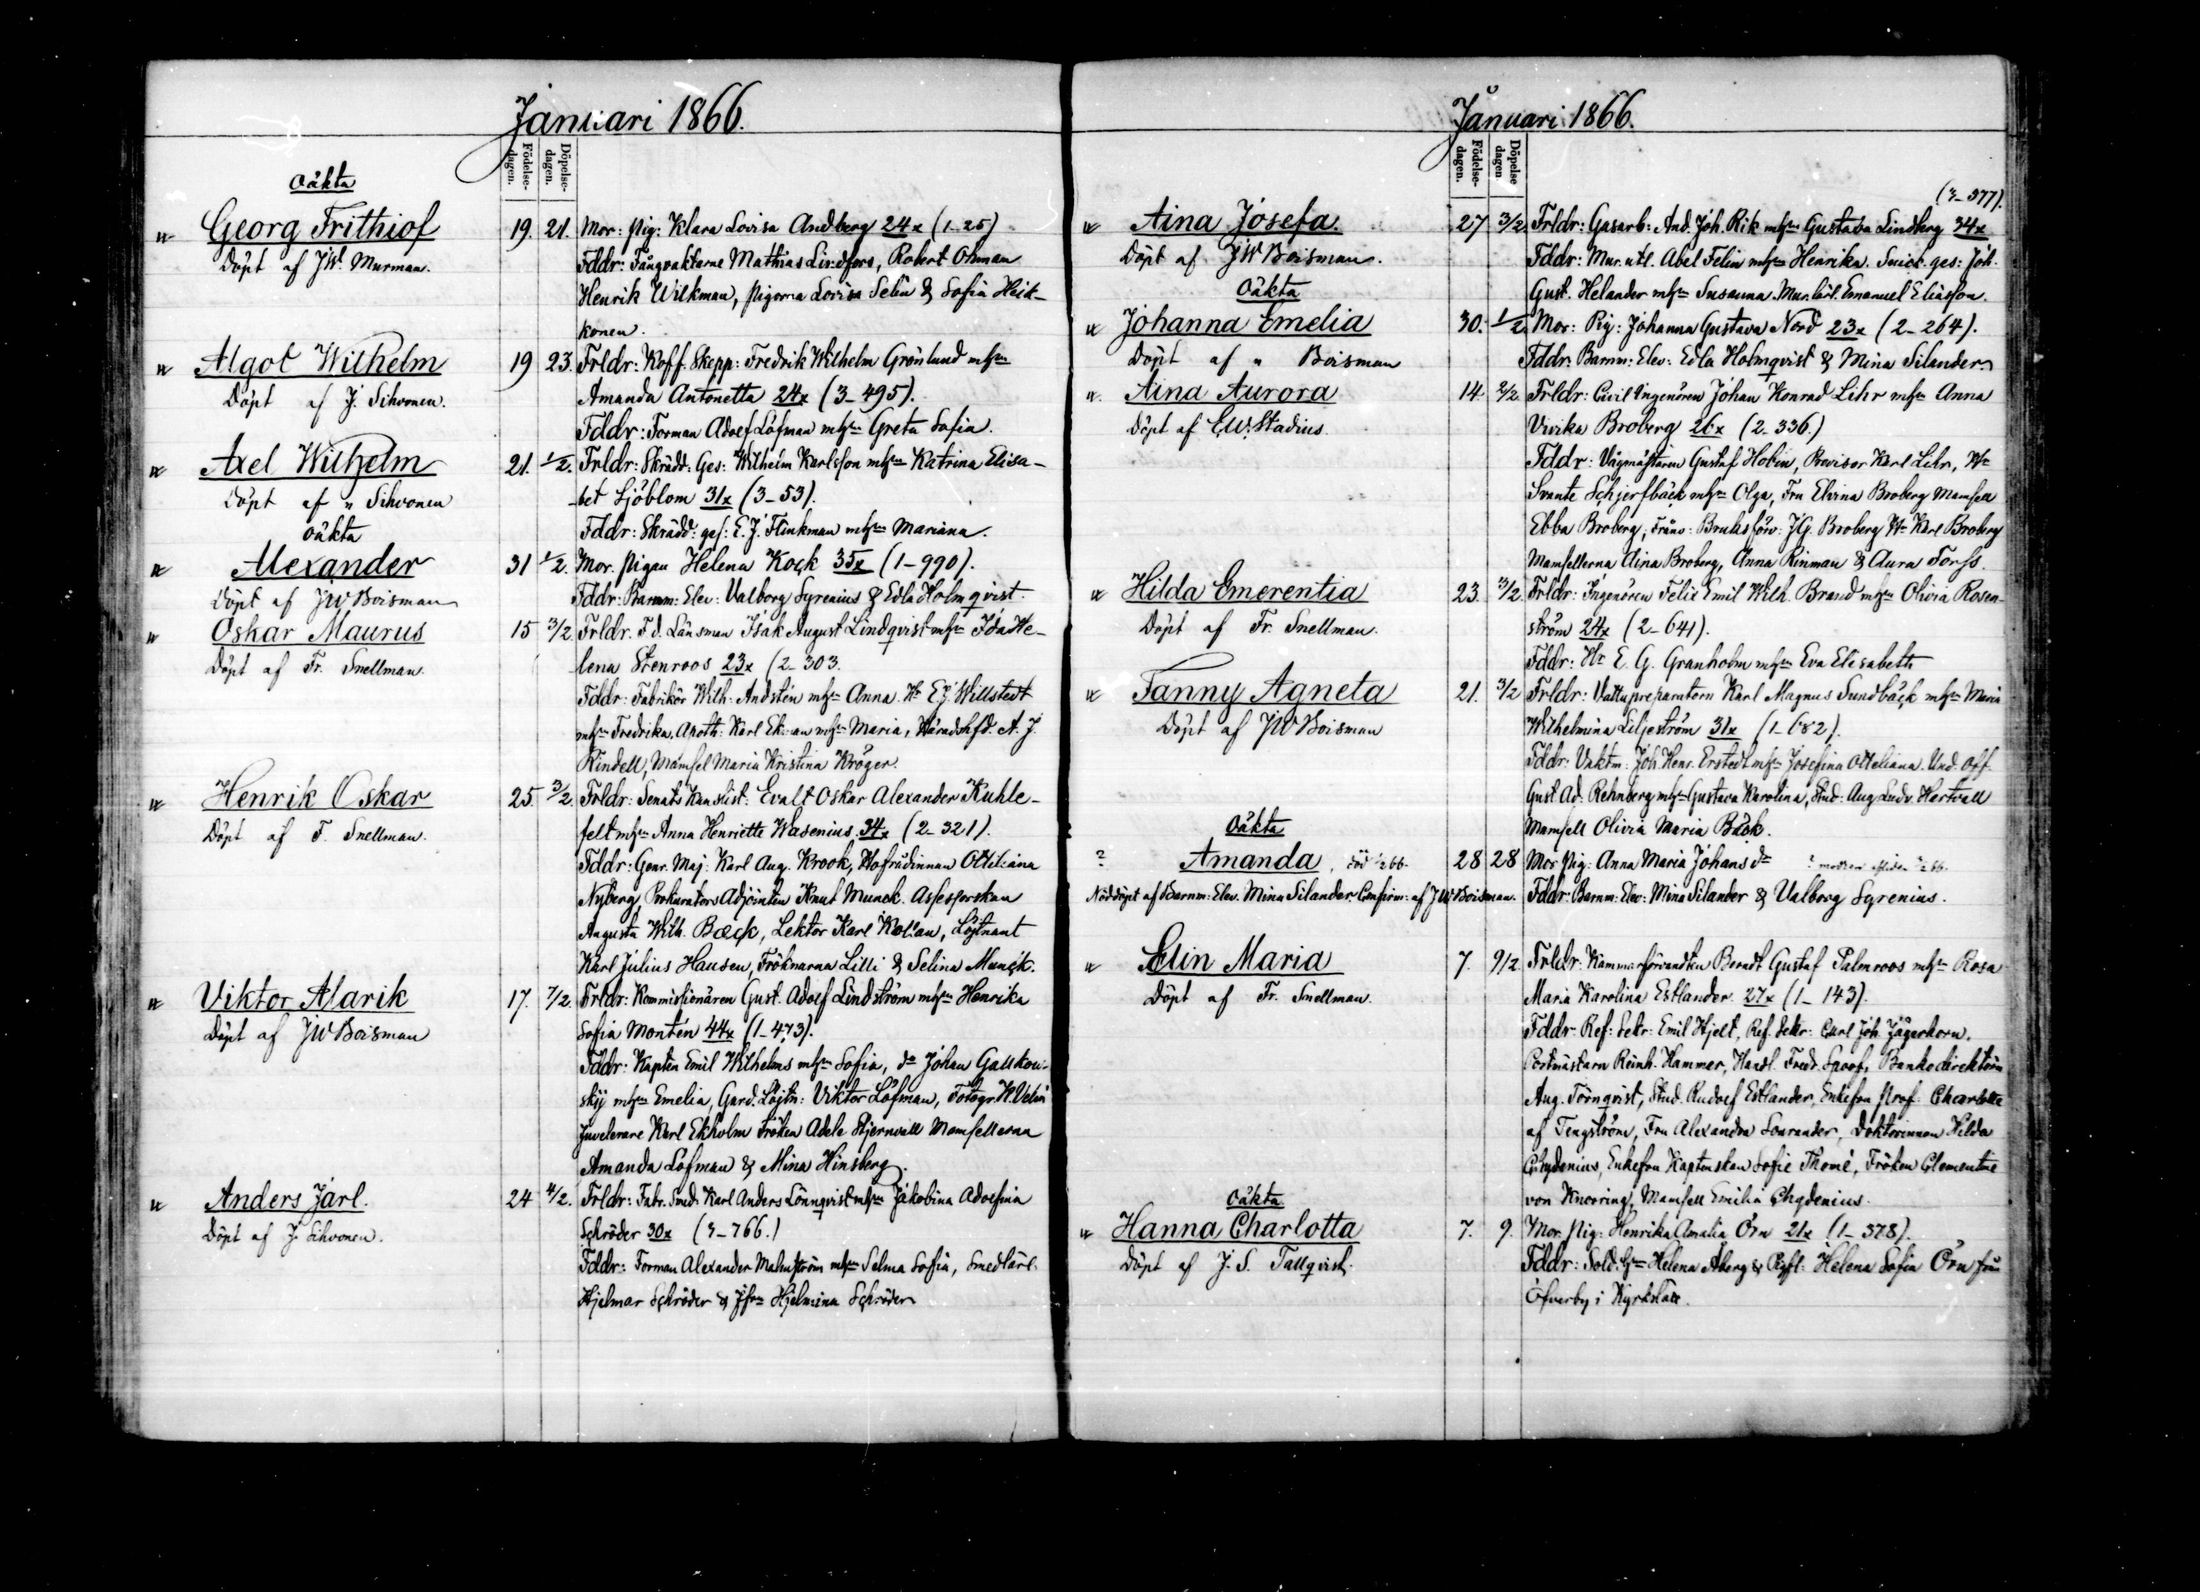 Januari 1866.
Födelse-dagen. Döpelse-dagen.
Oäkta
Georg Frithiof 19. 21. Mor: Pig: Klara Lovisa Andberg 24x (1-25)
Döpt af JW. Murman. Fddr: Fångvaktarne Mathias Lindfors, Robert Ohman
Henrik Wilkman, pigorna Lovisa Selin & Sofia Heik-
konen.
Algot Wilhelm 19 23. Frldr: Koff. Skepp: Fredrik Wilhelm Grönlund mhn
Döpt af J. Sihvonen. Amanda Antonetta 24x (3-495).
Fddr: Forman Adolf Löfman mhn Greta Sofia.
Axel Wilhelm 21. 1/2. Frldr: Skrädd: Ges: Wilhelm Karlsson mhn Katrina Elisa-
Döpt af " Sihvonen -bet Sjöblom 31x (3-53).
Fddr: Skrädd: ges: E. J. Flinkman mhn Mariana.
Oäkta
Alexander 31 1/2. Mor. Pigan Helena Kock 35x (1-990).
Döpt af JW Boisman Fddr: Barnm: Elev: Valborg Syrenius & Edla Holmqvist.
Oskar Maurus 15 3/2 Frldr. F.d. Länsman Isak August Lindqvist mhn Ida He-
Döpt af Fr. Snellman. lena Stenroos 23x (2-303.
Fddr: Fabrikör Wilh: Andstén mhn Anna. Hr EJ Willstedt
mhn Fredrika, Apoth: Karl Ekman mhn Maria, Häradshfd. A. J.
Kindell, Mamsel Maria Kristina Kröger.
Henrik Oskar 25. 3/2. Frldr: Senats Kanslist: Evalt Oskar Alexander Kuhle-
Döpt af F. Snellman. felt mhn Anna Henriette Wasenius 34x (2-321).
Fddr: Genr. Maj: Karl Aug. Krook, Hofrådinnan Ottiliana
Nyberg, Prokurators Adjointen Knut Munck. Assessorskan
Augusta Wilh. Bæck, Lektor Karl , Löjtnant
Karl Julius Hausen, Fröknarna Lilli & Selina Munck.
Viktor Alarik 17. 7/2. Frldr: Kommissionären Gust. Adolf Lindström mhn Henrika
Döpt af JW Boisman Sofia Montén 44x (1-473).
Fddr: Kapten Emil Wilhelms mhn Sofia, do Johan Gallkow-
skij mhn Emelia, Gard. Löjtn: Viktor Löfman, Fotogr.
Juvelerare Karl Ekholm Fröken Adele Stjernvall Mamsellerna
Amanda Löfman & Mina Hinsberg.
Anders Jarl. 24 4/2. Frldr: Fabr. Smed: Karl Anders Lönnqvist mhn Jakobina Adolfina
Döpt af J. Sihvonen. Schröder 30x (3-766.)
Fddr: Forman Alexander Malmström mhn Selma Sofia, Smedlärl.
Hjelmar Schröder & Jfrn Hjelmina Schröder
Januari 1866.
Födelse-dagen. Döpelse dagen
(3-377).
Aina Josefa. 27 3/2 Frldr: Gasarb: And. Joh. Rik mhn Gustava Lindberg 34x
Döpt af JW Boisman. Fddr: Mur. utl. Abel Felin mhn Henrika. Snick. ges: Joh.
Oäkta Gust. Helander mhn Susanna. Mur. lärl. Emanuel Eliasson.
Johanna Emelia 30. 1/2 Mor: Pig: Johanna Gustava Nord 23x (2-264).
Döpt af " Boisman Fddr: Barnm: Elev: Edla Holmqvist & Mina Silander
Aina Aurora 14. 2/2 Frldr: Civil Ingenören Johan Konrad Lihr mhn Anna
Döpt af E.W. Stadius. Vivika Broberg 26x (2-336.)
Fddr: Vågmästaren Gustaf Hobin, Provisor Karl Lihr, Hr
Svante Schjerfbäck mhn Olga, Fru Elvina Broberg Mamsell
Ebba Broberg; Fråns: Bruksförv: JG. Broberg Hr Karl Broberg
Mamsellerna Aina Broberg, Anna Rinman & Aura Forss.
Hilda Emerentia 23. 3/2. Frldr: Ingenören Felix Emil Wilh. Brand mhn Olivia Rosen-
Döpt af Fr. Snellman. ström 24x (2-641).
Fddr: Hr E. G. Granholm mhn Eva Elisabeth
Fanny Agneta 21. 3/2 Frldr: Vattupreparatorn Karl Magnus Sundbäck mhn Maria
Döpt af JW Boisman Wilhelmina Liljeström 31x (1-682).
Fddr: Vaktm: Joh. Henr. Erstedt mhn Josefina Otteliana. Und. Off.
Gust. Ad. Rehnberg mhn Gustava Karolina, Stud: Aug Ludv. Hartvall
Oäkta Mamsell Olivia Maria Bäck.
? Amanda, död 1/2 66 28 28 Mor Pig: Anna Maria Johans dr
Nöddöpt af Barnm: Elev. Mina Silander Confirm: af JW Boisman. Fddr: Barnm: Elev: Mina Silander & Valborg Syrenius.
Elin Maria 7. 9/2. Frldr: Kammarförvandten Berndt Gustaf Palmroos mhn Rosa
Döpt af Fr. Snellman. Maria Karolina Estlander. 27x (1-143).
Fddr: Ref: Sekr: Emil Hjelt, Ref. Sekr: Carl Joh Jägerhorn,
Postmästarn Reinh. Hammer, Handl. Fred. Spoof, Bankodirektörn
Aug. Törnqvist, Stud. Rudolf Estlander, Enkefru Prof: Charlotte
af Tengström, Fru Alexandra Sourander, Doktorinnan Hilda
Chydenius, Enkefru Kaptenskan Sofie Thomé, Fröken Clementine
Oäkta von Knorring, Mamsell Emilia Chydenius.
Hanna Charlotta 7. 9. Mor. Pig: Henrika Amalia Örn 21x (1-378).
Döpt af J. S. Tallqvist. Fddr: Sold. Hn Helena Åberg & Pigfl: Helena Sofia Örn från
Öfverby i Kyrkslätt.